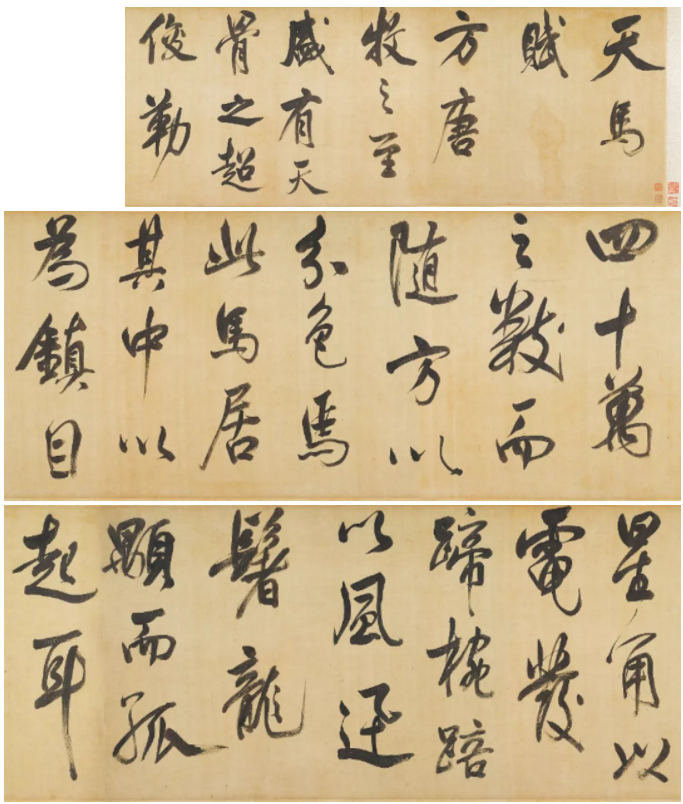 天馬
賦
方唐
牧之至
盛有天
骨之超
俊勒
四十萬
之數而
随方以
分色焉
此馬居
其中以
為鎮目
星角以
電發
蹄椀踣
以風迅
鬐龍
顒而孤
起耳